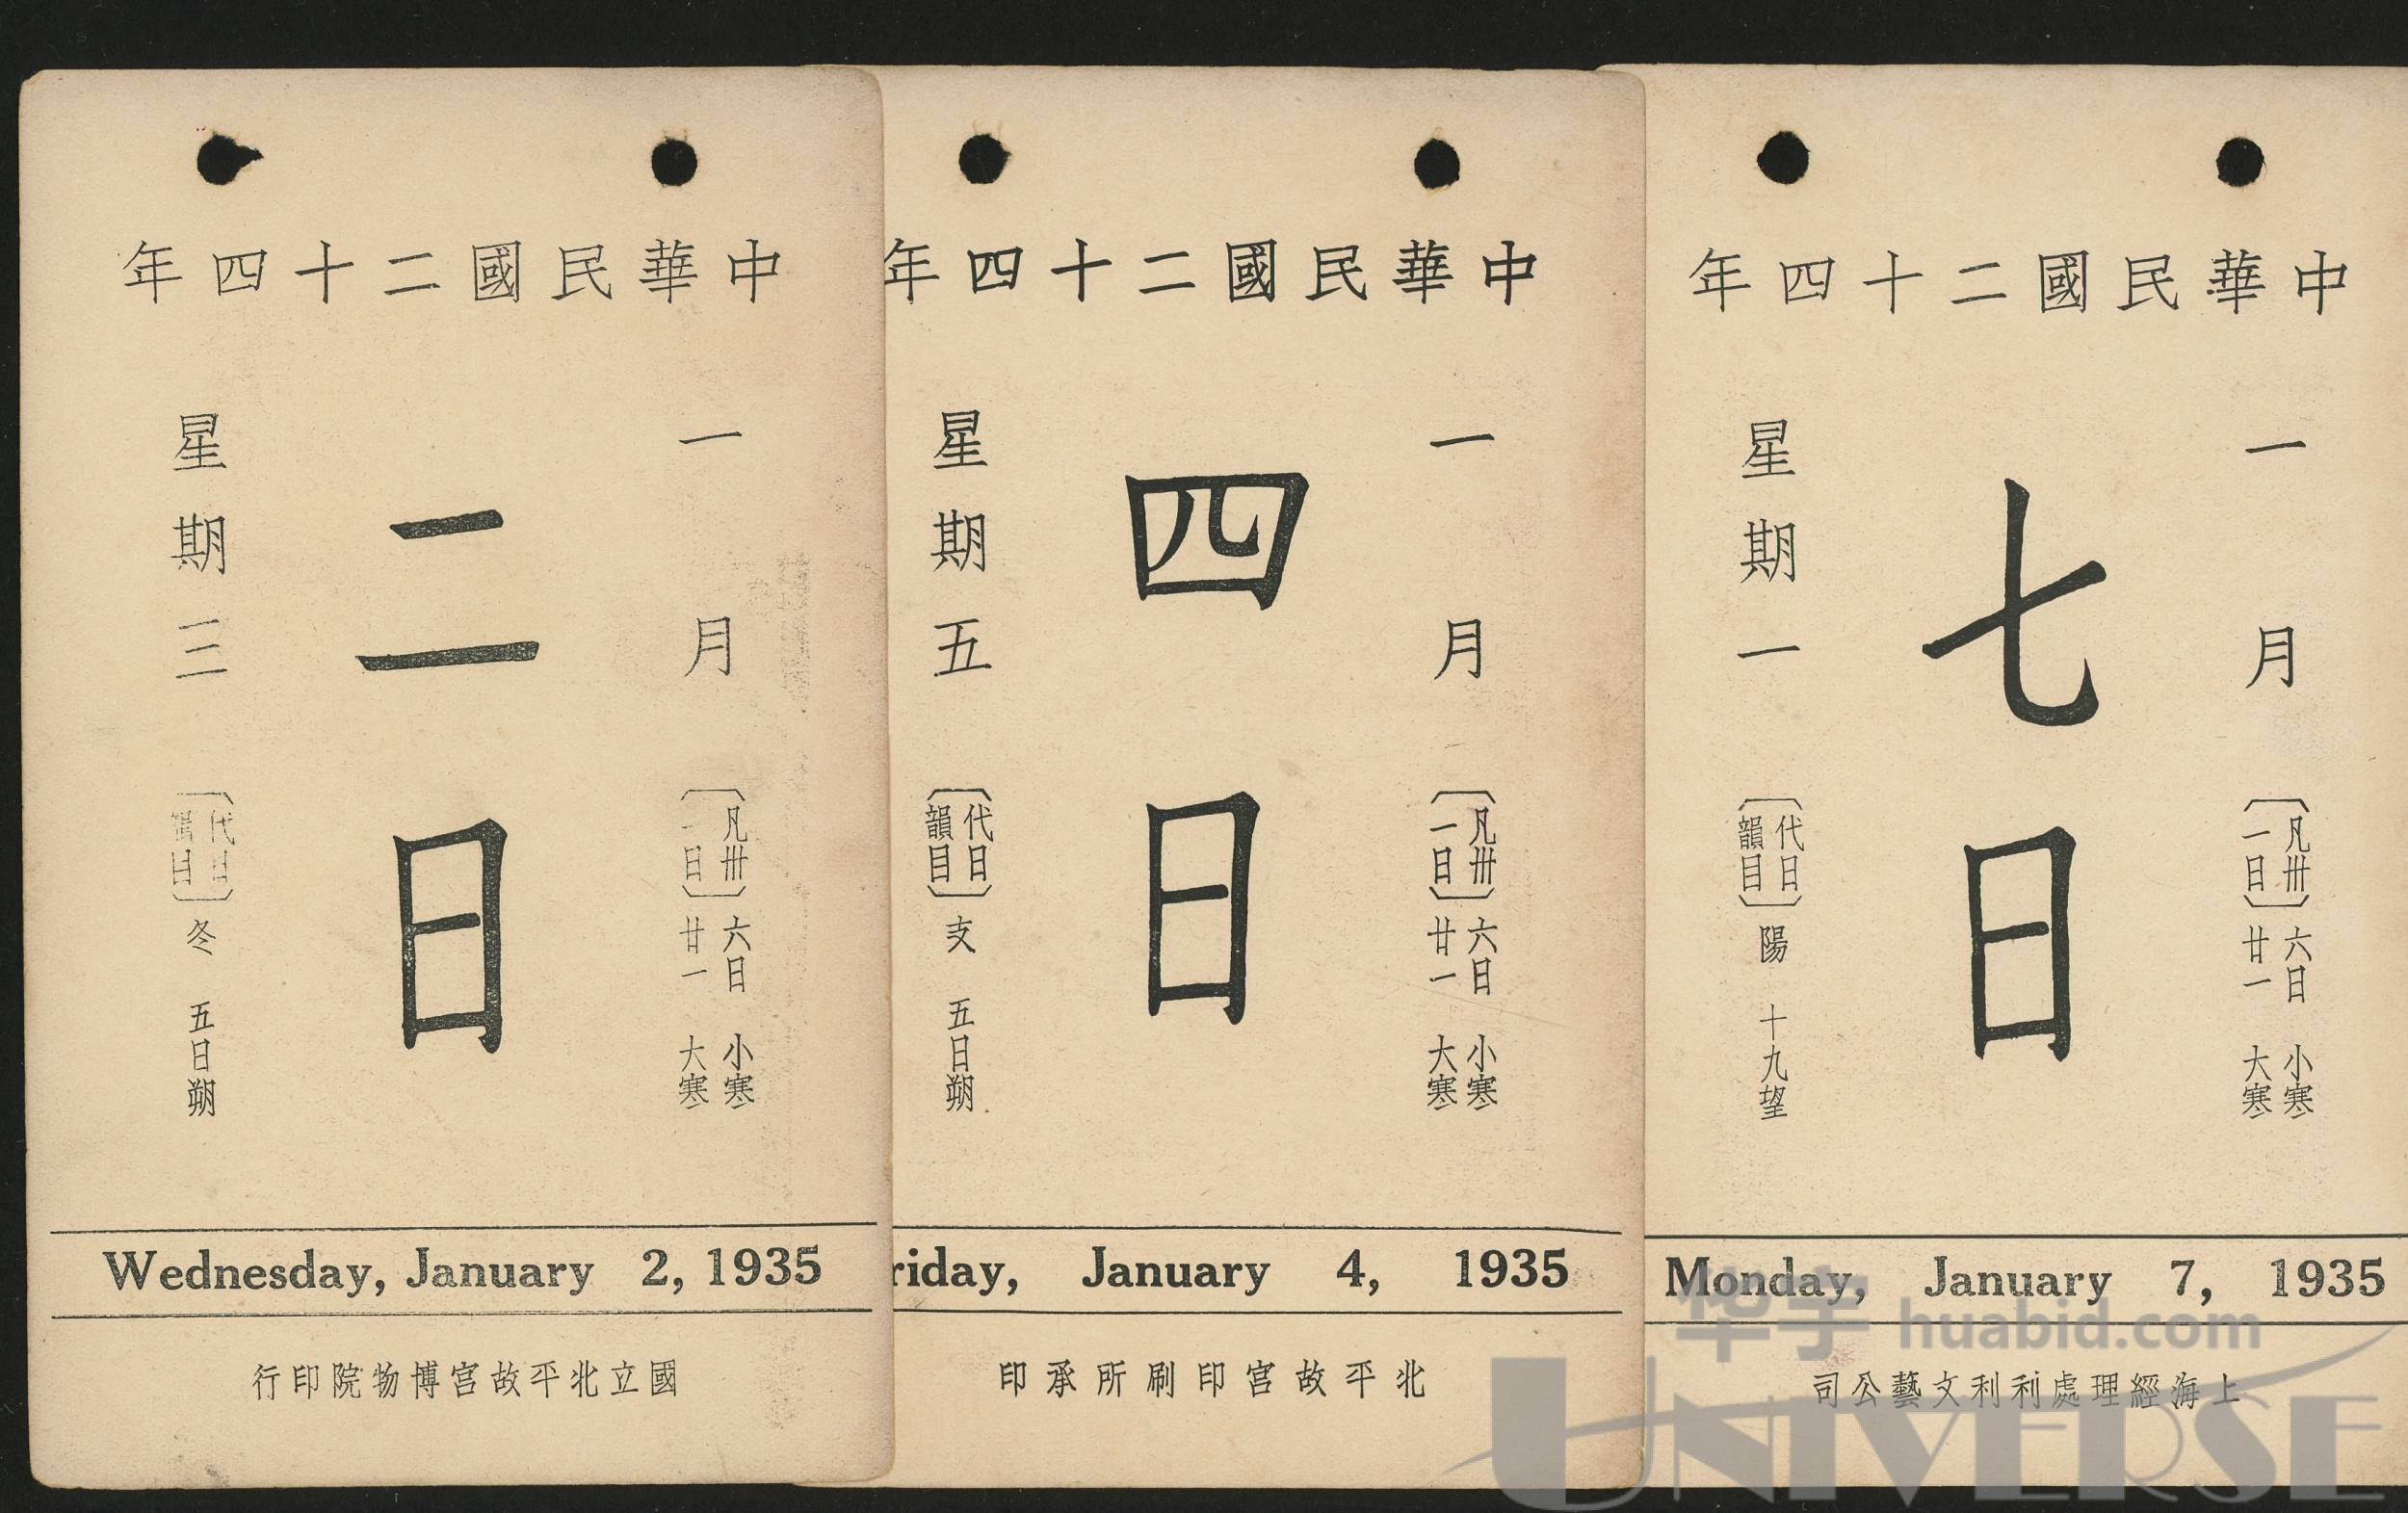 中華民國二十四年
一月
〔凡卅一日〕六日 小寒
廿一 大寒
二日
星期三
〔代日韻目〕冬 五日朔
Wednesday, January 2, 1935
國立北平故宮博物院印行
中華民國二十四年
一月
〔凡卅一日〕六日 小寒
廿一 大寒
四日
星期五
〔代日韻目〕支 五日朔
riday, January 4, 1935
北平故宮印刷所承印
中華民國二十四年
一月
〔凡卅一日〕六日 小寒
廿一 大寒
七日
星期一
〔代日韻目〕陽 十九望
Monday, January 7, 1935
上海經理處利利文藝公司
华宇 huabid.com
UNIVERSE